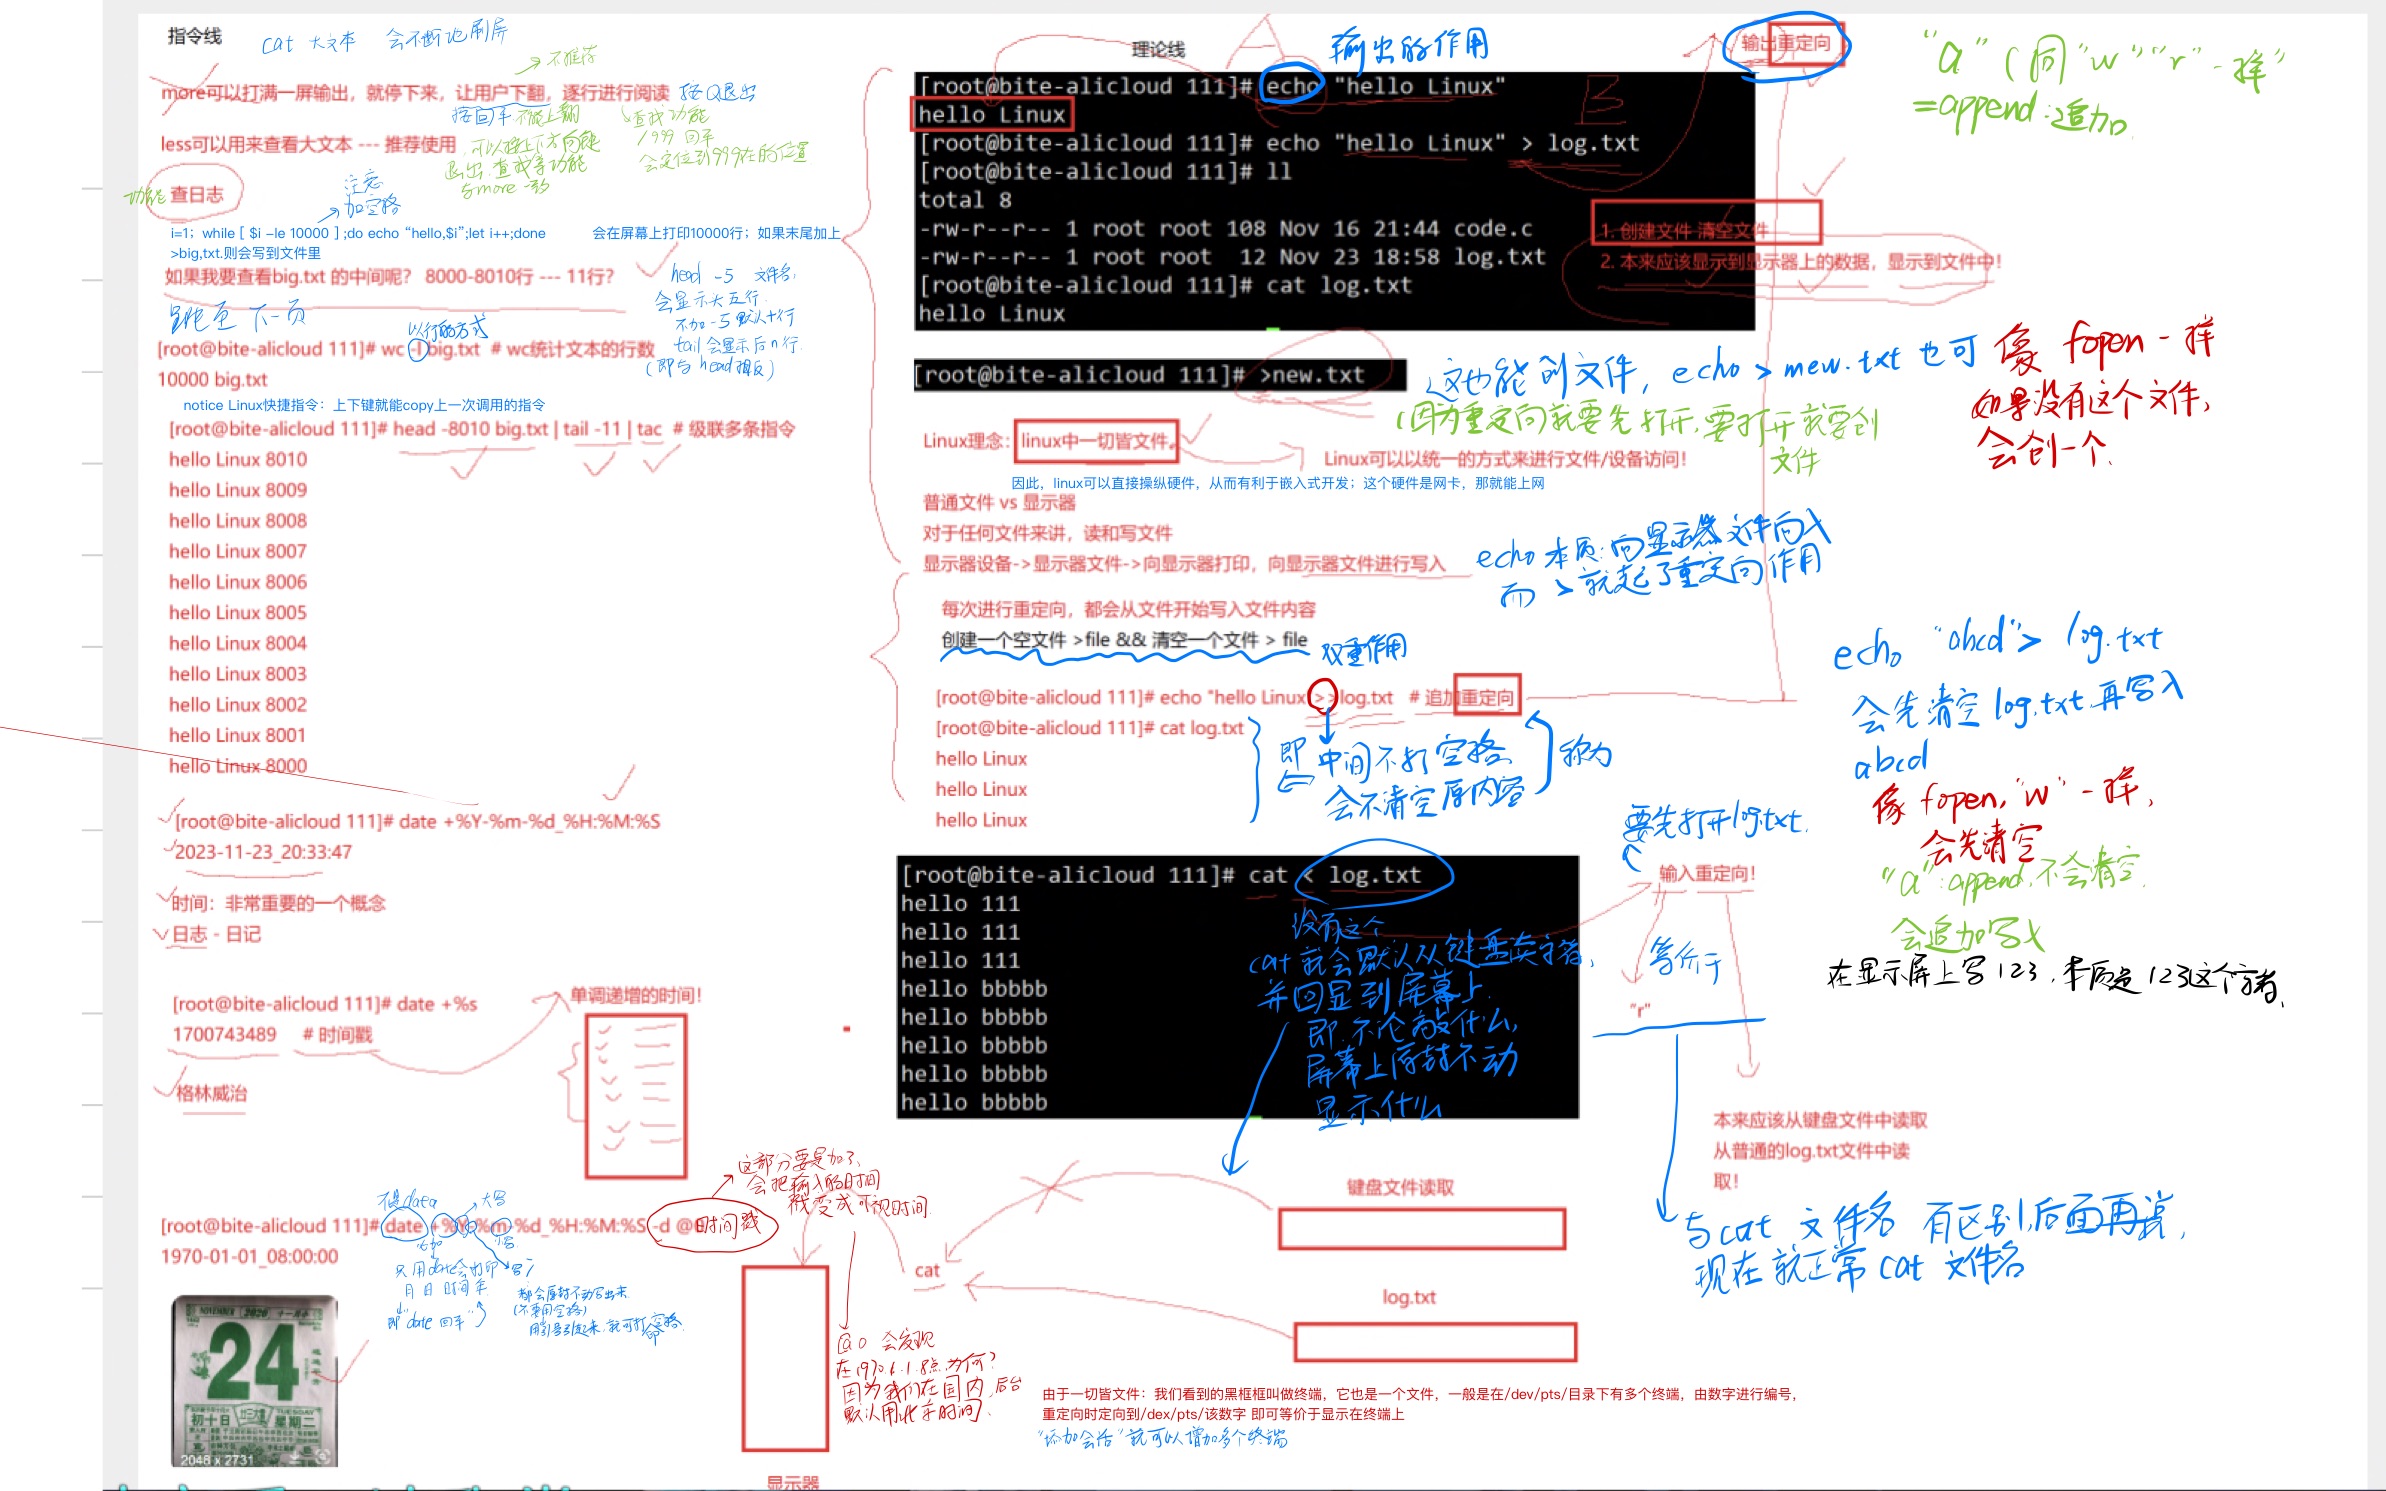 指令线
cat 大文本 会不断地刷屏
→不推荐
more可以打满一屏输出，就停下来，让用户下翻，逐行进行阅读 按Q退出
按回车 不能上翻
查找功能
/999 回车
会定位到999在的位置
less可以用来查看大文本 --- 推荐使用
可以按上下方向键
退出.查找等功能
与more一致
功能 查日志
注意
加空格
i=1；while [ $i -le 10000 ] ;do echo “hello,$i”;let i++;done
会在屏幕上打印10000行；如果末尾加上
>big,txt.则会写到文件里
如果我要查看big.txt 的中间呢？ 8000-8010行 --- 11行？
head -5 文件名,
会显示大五行
不加-5默认十行
tail会显示后n行.
(即与head相反)
下一页
以行的方式
[root@bite-alicloud 111]# wc -l big.txt # wc统计文本的行数
10000 big.txt
notice Linux快捷指令：上下键就能copy上一次调用的指令
[root@bite-alicloud 111]# head -8010 big.txt | tail -11 | tac # 级联多条指令
hello Linux 8010
hello Linux 8009
hello Linux 8008
hello Linux 8007
hello Linux 8006
hello Linux 8005
hello Linux 8004
hello Linux 8003
hello Linux 8002
hello Linux 8001
hello Linux 8000
[root@bite-alicloud 111]# date +%Y-%m-%d_%H:%M:%S
2023-11-23_20:33:47
时间：非常重要的一个概念
日志 - 日记
[root@bite-alicloud 111]# date +%s
1700743489 # 时间戳
单调递增的时间！
格林威治
这部分要是加了,
会把输入的时间
戳变成可视时间
不是data
大写
[root@bite-alicloud 111]# date +%Y-%m-%d_%H:%M:%S -d @时间戳
1970-01-01_08:00:00
只用date会打印
月日 时间 年
即"date 回车"
都会原封不动写出来
(不要用空格)
用引号引起来,就可打空格
NOVEMBER 2020 十一月小
24
TUESDAY
初十日
星期二
2048 x 2731
@0 会发现
在1970.1.1.8点 为何？
因为我们在国内,后台
默认用北京时间.
显示器
理论线
输出的作用
A
[root@bite-alicloud 111]# echo "hello Linux"
hello Linux
B
[root@bite-alicloud 111]# echo "hello Linux" > log.txt
[root@bite-alicloud 111]# ll
total 8
-rw-r--r-- 1 root root 108 Nov 16 21:44 code.c
-rw-r--r-- 1 root root 12 Nov 23 18:58 log.txt
[root@bite-alicloud 111]# cat log.txt
hello Linux
输出重定向
1. 创建文件 清空文件
2. 本来应该显示到显示器上的数据，显示到文件中！
"a" (同"w""r"一样"
=append:追加
[root@bite-alicloud 111]# >new.txt
这也能创文件, echo > mew.txt 也可
(因为重定向就要先打开,要打开就要创
文件
像 fopen 一样
如果没有这个文件,
会创一个.
Linux理念：linux中一切皆文件。
Linux可以以统一的方式来进行文件/设备访问！
因此，linux可以直接操纵硬件，从而有利于嵌入式开发；这个硬件是网卡，那就能上网
普通文件 vs 显示器
对于任何文件来讲，读和写文件
显示器设备->显示器文件->向显示器打印，向显示器文件进行写入
echo本质:向显示器文件向入
而 > 就起了重定向作用
每次进行重定向，都会从文件开始写入文件内容
创建一个空文件 >file && 清空一个文件 > file
双重作用
[root@bite-alicloud 111]# echo "hello Linux >> log.txt # 追加重定向
[root@bite-alicloud 111]# cat log.txt
hello Linux
hello Linux
hello Linux
即 中间不打空格
会不清空原内容
称为
echo "abcd"> log.txt
会先清空log.txt,再写入
abcd
像 fopen,"w"一样,
会先清空
"a":append,不会清空.
会追加写入
在显示屏上写123,本质是123这个字符、
[root@bite-alicloud 111]# cat < log.txt
hello 111
hello 111
hello 111
hello bbbbb
hello bbbbb
hello bbbbb
hello bbbbb
hello bbbbb
没有这个
cat就会默认从键盘读字符,
并回显到屏幕上.
即.不论敲什么,
屏幕上原封不动
显示什么
要先打开log.txt.
输入重定向！
等价于
"r"
本来应该从键盘文件中读取
从普通的log.txt文件中读
取！
与cat 文件名 有区别,后面再说,
现在就正常cat 文件名
键盘文件读取
cat
log.txt
由于一切皆文件：我们看到的黑框框叫做终端，它也是一个文件，一般是在/dev/pts/目录下有多个终端，由数字进行编号，
重定向时定向到/dex/pts/该数字 即可等价于显示在终端上
"添加会话"就可以增加多个终端